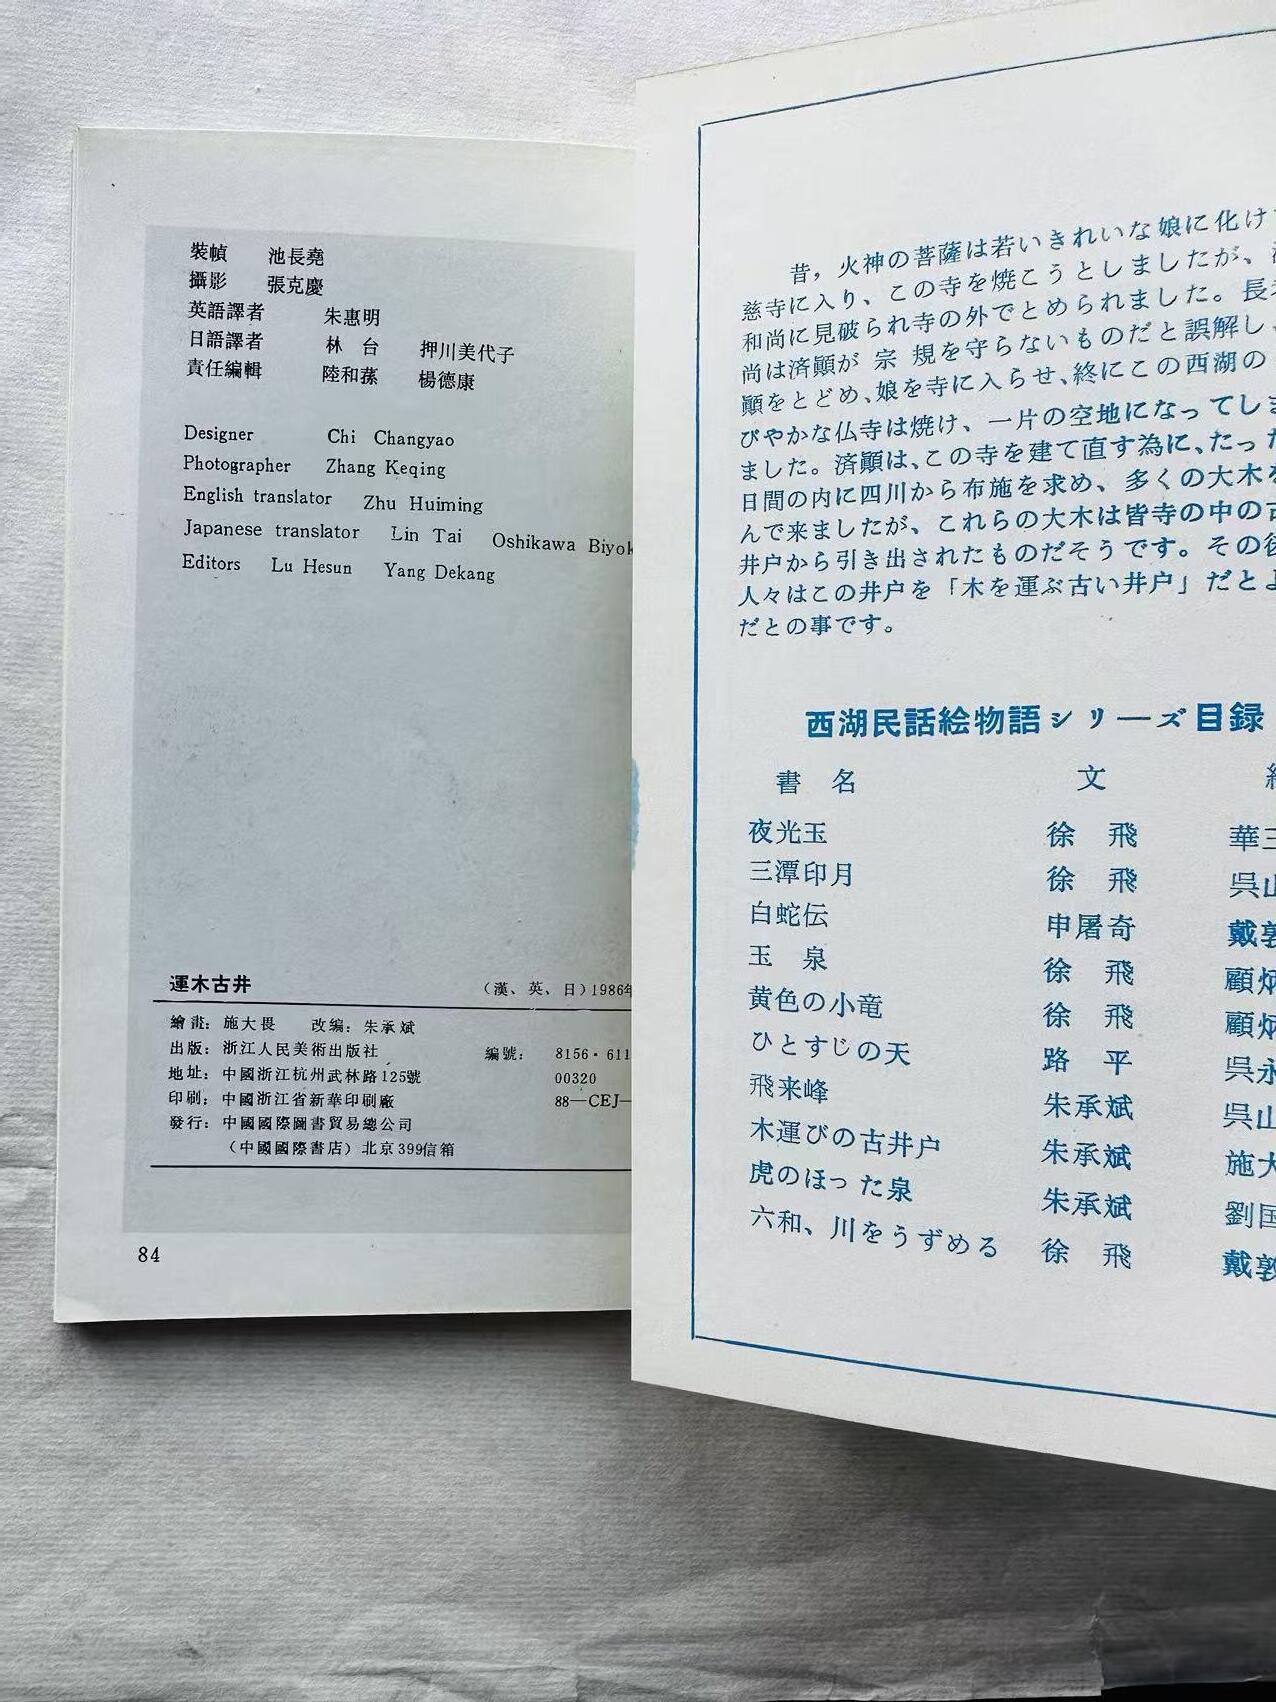 裝幀 池長堯
攝影 張克慶
英語譯者 朱惠明
日語譯者 林台 押川美代子
責任編輯 陸和蓀 楊德康
Designer Chi Changyao
Photographer Zhang Keqing
English translator Zhu Huiming
Japanese translator Lin Tai Oshikawa Biyok
Editors Lu Hesun Yang Dekang
運木古井 （漢、英、日）1986年
繪畫：施大畏 改編：朱承斌
出版：浙江人民美術出版社 編號： 8156·611
地址：中國浙江杭州武林路125號 00320
印刷：中國浙江省新華印刷廠 88—CEJ—
發行：中國國際圖書貿易總公司
（中國國際書店）北京399信箱
84
昔，火神の菩薩は若いきれいな娘に化け
慈寺に入り、この寺を焼こうとしましたが、
和尚に見破られ寺の外でとめられました。長
尚は済顚が 宗 規を守らないものだと誤解し、
顚をとどめ、娘を寺に入らせ、終にこの西湖の
びやかな仏寺は焼け、一片の空地になってし
ました。済顚は、この寺を建て直す為に、たった
日間の内に四川から布施を求め、多くの大木を
んで来ましたが、これらの大木は皆寺の中の古
井戸から引き出されたものだそうです。その後
人々はこの井戸を「木を運ぶ古い井戸」だとよ
だとの事です。
西湖民話絵物語シリーズ目録
書名 文 絵
夜光玉 徐飛 華三
三潭印月 徐飛 呉山
白蛇伝 申屠奇 戴敦
玉泉 徐飛 顧炳
黄色の小竜 徐飛 顧炳
ひとすじの天 路平 呉永
飛来峰 朱承斌 呉山
木運びの古井戸 朱承斌 施大
虎のほった泉 朱承斌 劉国
六和、川をうずめる 徐飛 戴敦